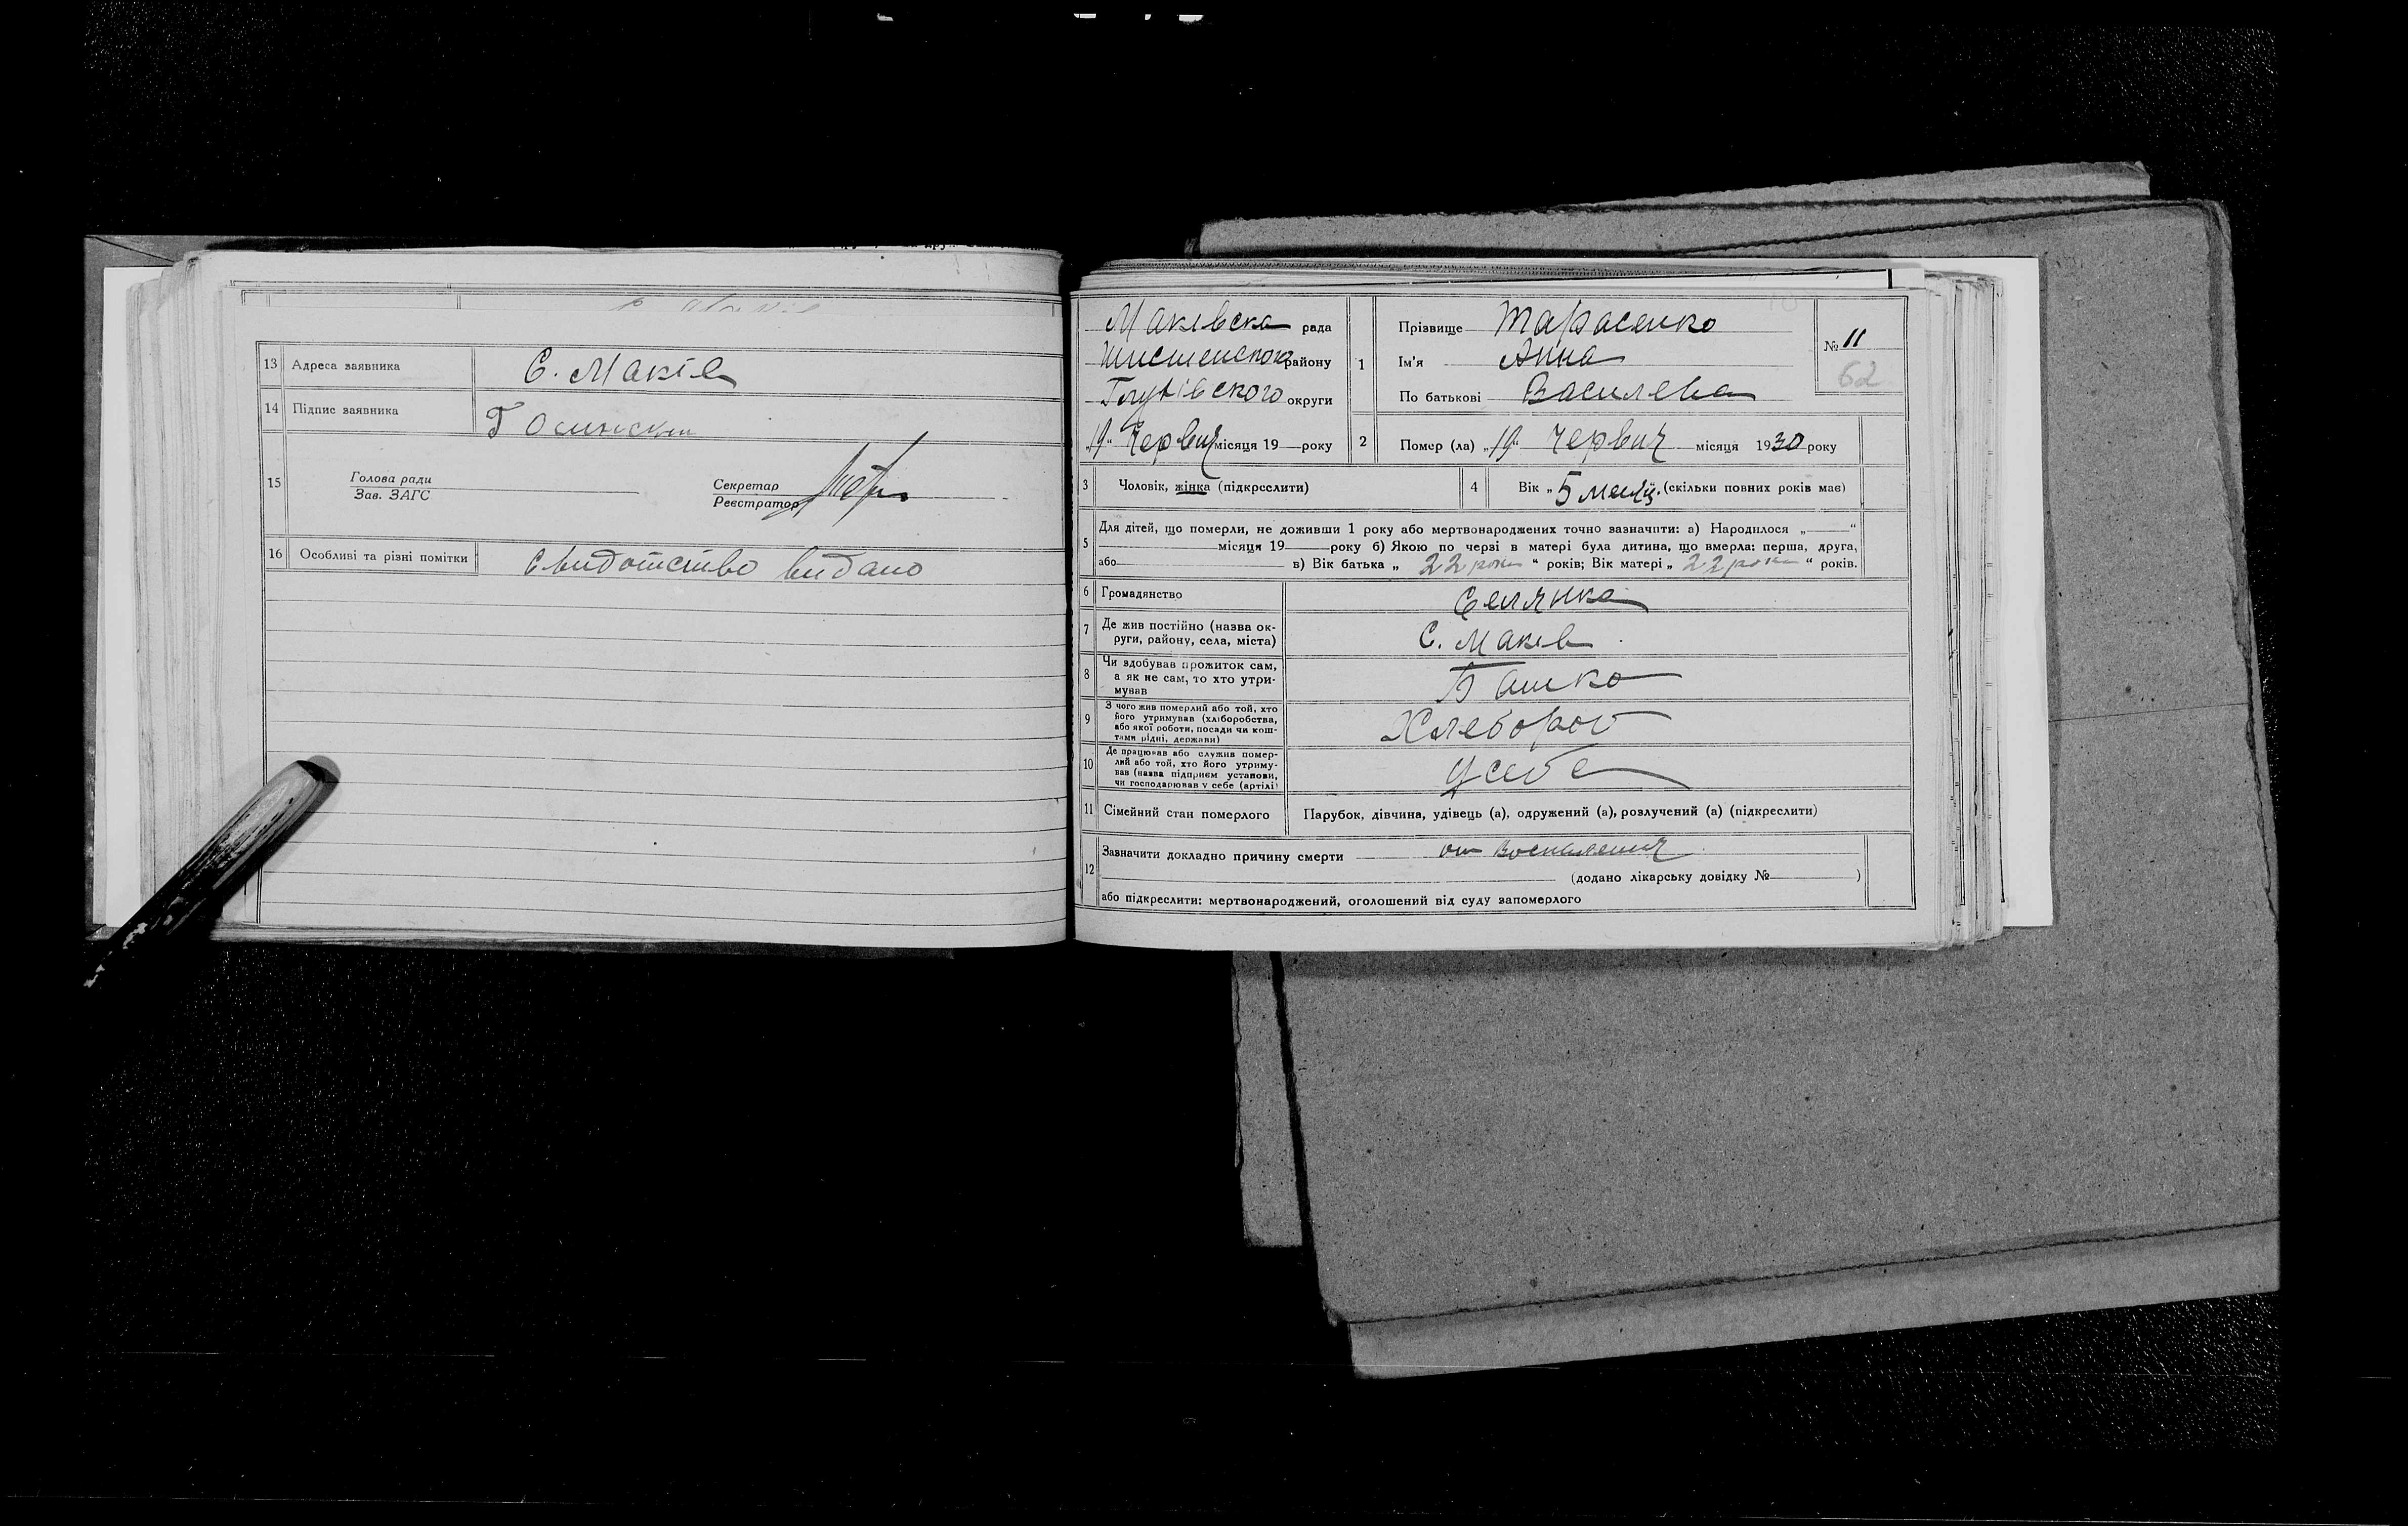 13 Адреса заявника С. Макіів
14 Підпис заявника
15 Голова ради
Зав. ЗАГС
Секретар
Реєстратор
16 Особливі та різні помітки Свидотство видано
Маківська рада
району
Глухівского округи
„19“ Червня місяця 19 року
1 Прізвище Тарасенко
Ім'я Анна
По батькові Василева
№ 11
62
2 Помер (ла) „19“ Червня місяця 1930 року
3 Чоловік, жінка (підкреслити)
4 Вік „5 месяц. (скільки повних років має)
5 Для дітей, що померли, не доживши 1 року або мертвонароджених точно зазначити: а) Народилося „ “
місяця 19 року б) Якою по черзі в матері була дитина, що вмерла: перша, друга,
або в) Вік батька „ 22 роки “ років; Вік матері „ 22 роки “ років.
6 Громадянство Селянка
7 Де жив постійно (назва ок-
руги, району, села, міста) С. Маків
8 Чи здобував прожиток сам,
а як не сам, то хто утри-
мував Батько
9 З чого жив померлий або той, хто
його утримував (хліборобства,
або якої роботи, посади чи кош-
тами рідні, держави) Хлебороб
10 Де працював або служив помер-
лий або той, хто його утриму-
вав (назва підприєм установи,
чи господарював у себе (артілі) У себе
11 Сімейний стан померлого Парубок, дівчина, удівець (а), одружений (а), розлучений (а) (підкреслити)
12 Зазначити докладно причину смерти от Воспаления
(додано лікарську довідку № )
або підкреслити: мертвонароджений, оголошений від суду запомерлого